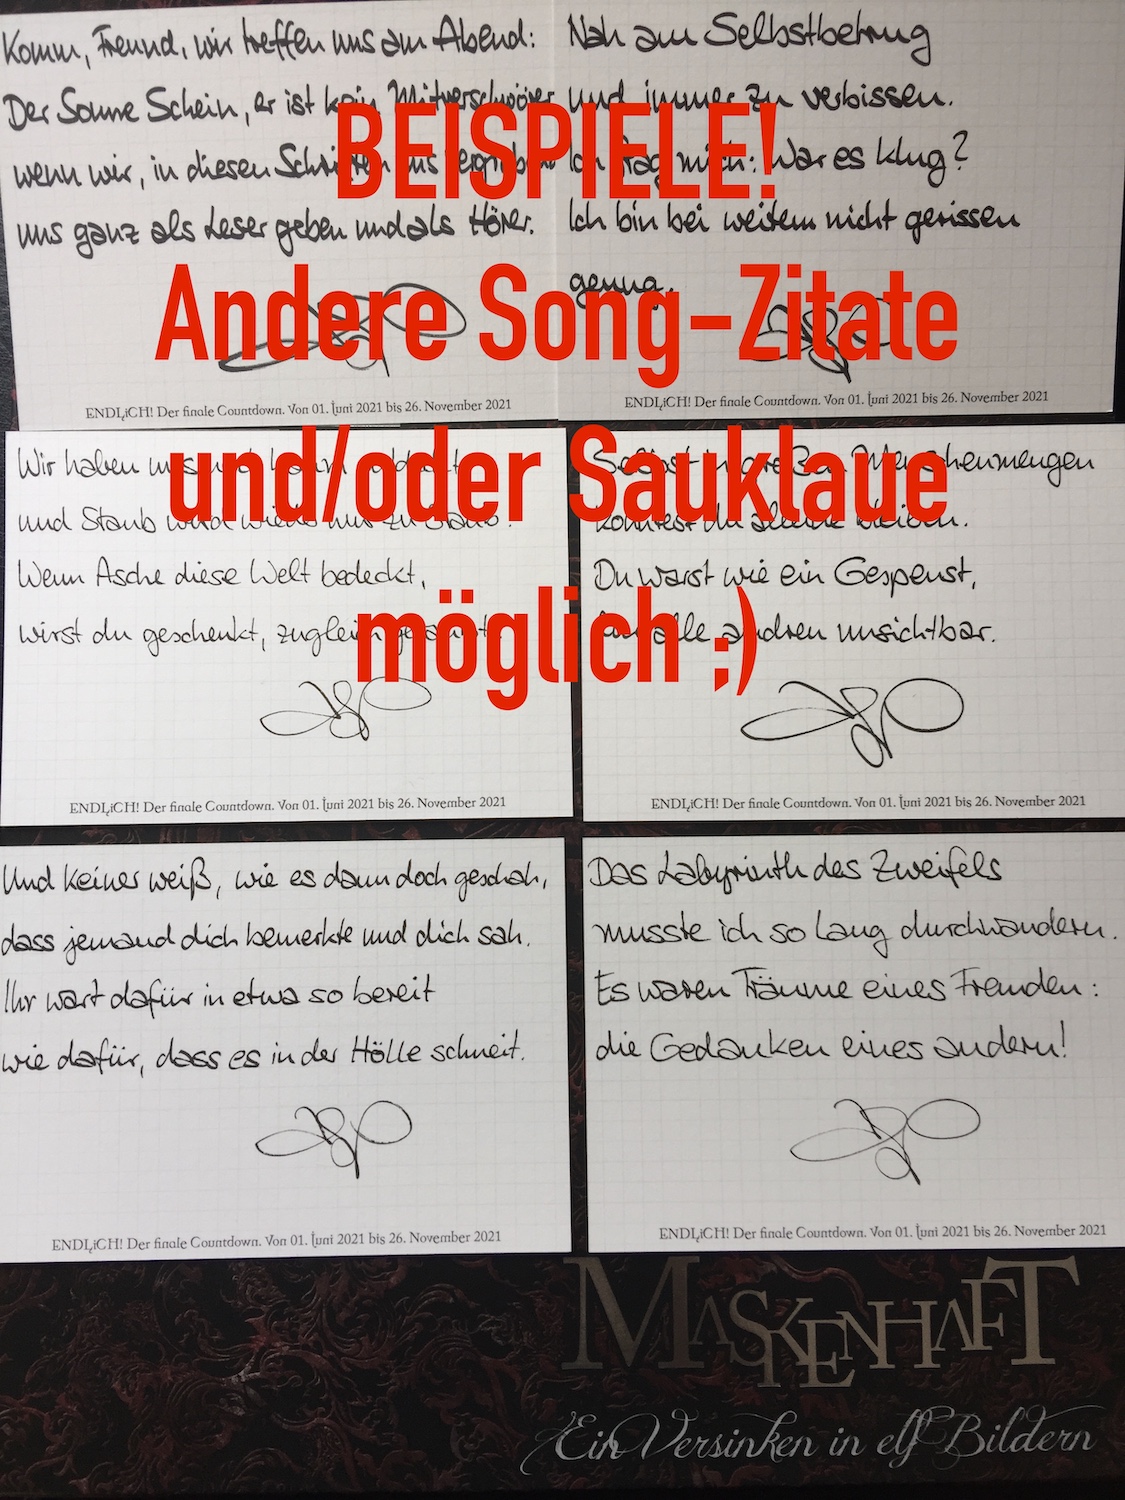 Komm, Freund, wir treffen uns am Abend:
Der Sonne Schein, er ist kein Mitverschwörer
wenn wir, in diesen Schriften uns vergraben
uns ganz als Leser geben und als Hörer.
ENDLiCH! Der finale Countdown. Von 01. Juni 2021 bis 26. November 2021
Nah am Selbstbetrug
und immer zu verbissen.
Ich frag mich: War es klug?
Ich bin bei weitem nicht gerissen
genug.
ENDLiCH! Der finale Countdown. Von 01. Juni 2021 bis 26. November 2021
BEISPIELE!
Andere Song-Zitate
und/oder Sauklaue
möglich ;)
Wir haben uns
und Staub wird wieder nur zu Staub.
Wenn Asche diese Welt bedeckt,
wirst du geschenkt, zugleich geraubt.
ENDLiCH! Der finale Countdown. Von 01. Juni 2021 bis 26. November 2021
Selbst in großen Menschenmengen
konntest du alleine bleiben.
Du warst wie ein Gespenst,
für alle andren unsichtbar.
ENDLiCH! Der finale Countdown. Von 01. Juni 2021 bis 26. November 2021
Und keiner weiß, wie es dann doch geschah,
dass jemand dich bemerkte und dich sah.
Ihr wart dafür in etwa so bereit
wie dafür, dass es in der Hölle schneit.
ENDLiCH! Der finale Countdown. Von 01. Juni 2021 bis 26. November 2021
Das Labyrinth des Zweifels
musste ich so lang durchwandern.
Es waren Träume eines Fremden:
die Gedanken eines andern!
ENDLiCH! Der finale Countdown. Von 01. Juni 2021 bis 26. November 2021
MASKENHAFT
Ein Versinken in elf Bildern